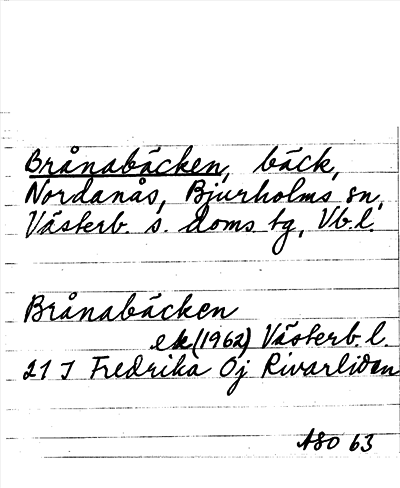 Brånabäcken, bäck,
Nordanås, Bjurholms sn,
Västerb. s. doms tg, Vb.l.
Brånabäcken
ek(1962) Västerb.l.
21 J Fredrika Öj Rivarliden
ASO 63